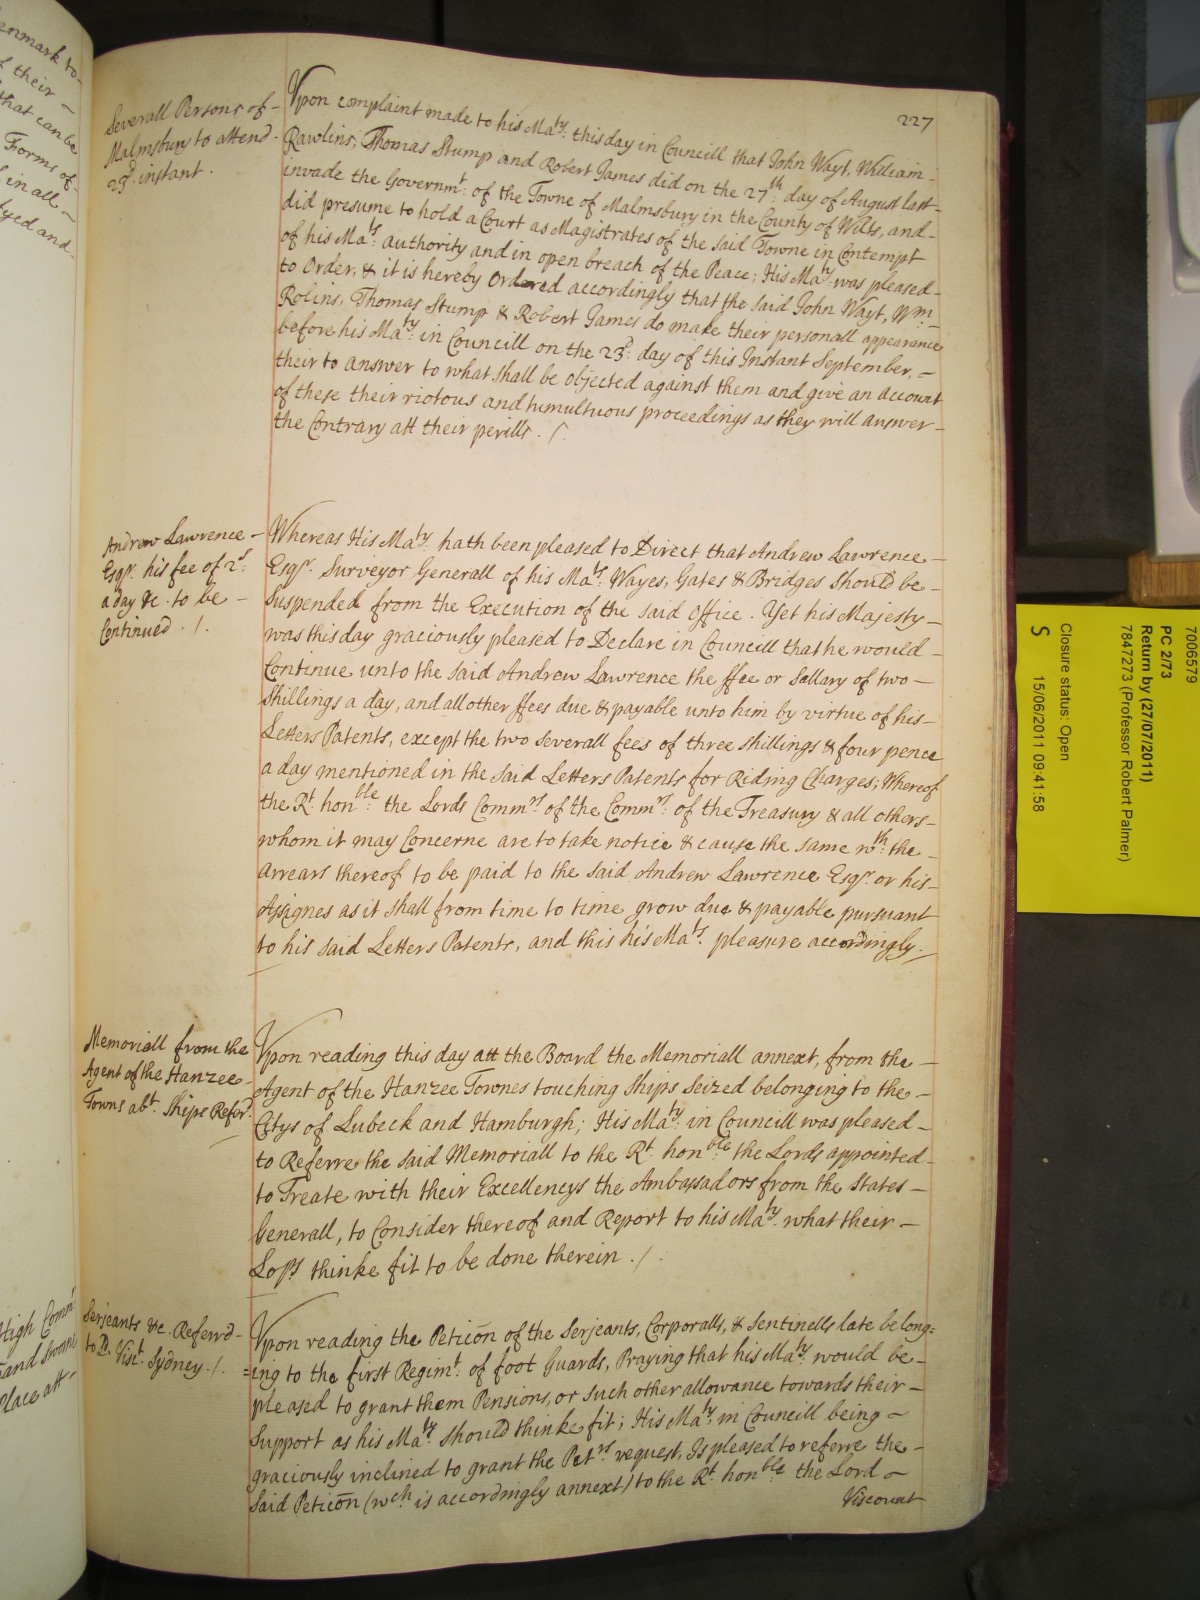 227
Severall Persons of-
Malmsbury to attend-
23d. instant.
Vpon complaint made to his Maty. this day in Councill that John Wayt, William-
Rawlins, Thomas Stump and Robert James did on the 27th. day of August last-
invade the Governmt. of the Towne of Malmsbury in the County of Wilts, and-
did presume to hold a Court as Magistrates of the said Towne in Contempt
of his Mats. authority and in open breach of the Peace; His Maty. was pleased-
to Order, & it is hereby Ordered accordingly that the said John Wayt, Wm-
Rolins, Thomas Stump & Robert James do make their personall appearance
before his Maty. in Councill on the 23d. day of this Instant September,-
their to answer to what shall be objected against them and give an account
of these their riotous and tumultuous proceedings as they will answer-
the Contrary att their perills. /.
Andrew Lawrence-
Esqr. his fee of 2s.
a day &c. to be-
Continued. /.
Whereas His Maty. hath been pleased to Direct that Andrew Lawrence-
Esqr. Surveyor Generall of his Mats. Wayes, Gates & Bridges should be-
Suspended from the Execution of the said Office. Yet his Majesty-
was this day graciously pleased to Declare in Councill that he would-
Continue unto the said Andrew Lawrence the ffee or Sallary of two-
Shillings a day, and all other ffees due & payable unto him by virtue of his-
Letters Patents, except the two severall fees of three shillings & four pence
a day mentioned in the said Letters Patents for Riding Charges; Whereof
the Rt. honble. the Lords Commrs. of the Commrs. of the Treasury & all others-
whom it may Concerne are to take notice & cause the same wth. the-
Arrears thereof to be paid to the said Andrew Lawrence Esqr. or his-
Assignes as it shall from time to time grow due & payable pursuant
to his said Letters Patents, and this his Mats. pleasure accordingly./
Memoriall from the
Agent of the Hanzee-
Towns abt. Ships Referd.
Vpon reading this day att the Board the Memoriall annext, from the-
Agent of the Hanzee Townes touching Ships seized belonging to the-
Citys of Lubeck and Hamburgh; His Maty. in Councill was pleased-
to Referre the said Memoriall to the Rt. honble. the Lords appointed-
to Treate with their Excellencys the Ambassadors from the States-
Generall, to Consider thereof and Report to his Maty. what their-
Lops. thinke fit to be done therein. /.
Serjeants &c. Referrd-
to Visct. Sydney. /.
Vpon reading the Peticōn of the Serjeants, Corporalls, & Sentinells late belong=
=ing to the first Regimt. of foot Guards, Praying that his Maty. would be-
pleased to grant them Pensions, or such other allowance towards their-
Support as his Maty. should thinke fit; His Maty. in Councill being-
graciously inclined to grant the Petrs. request, Is pleased to referre the-
said Peticōn (wch. is accordingly annext) to the Rt. honble. the Lord-
Viscount
enmark to-
f their-
that can be
Forms of-
in all-
and-
High Comrs.
Place att-
7006579
PC 2/73
Return by (27/07/2011)
7847273 (Professor Robert Palmer)
Closure status: Open
S 15/06/2011 09:41:58